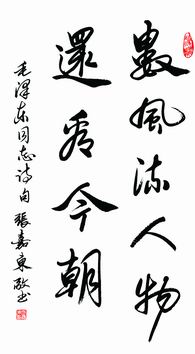 數風流人物
還看今朝
毛澤东同志詩句 張嘉東敬书